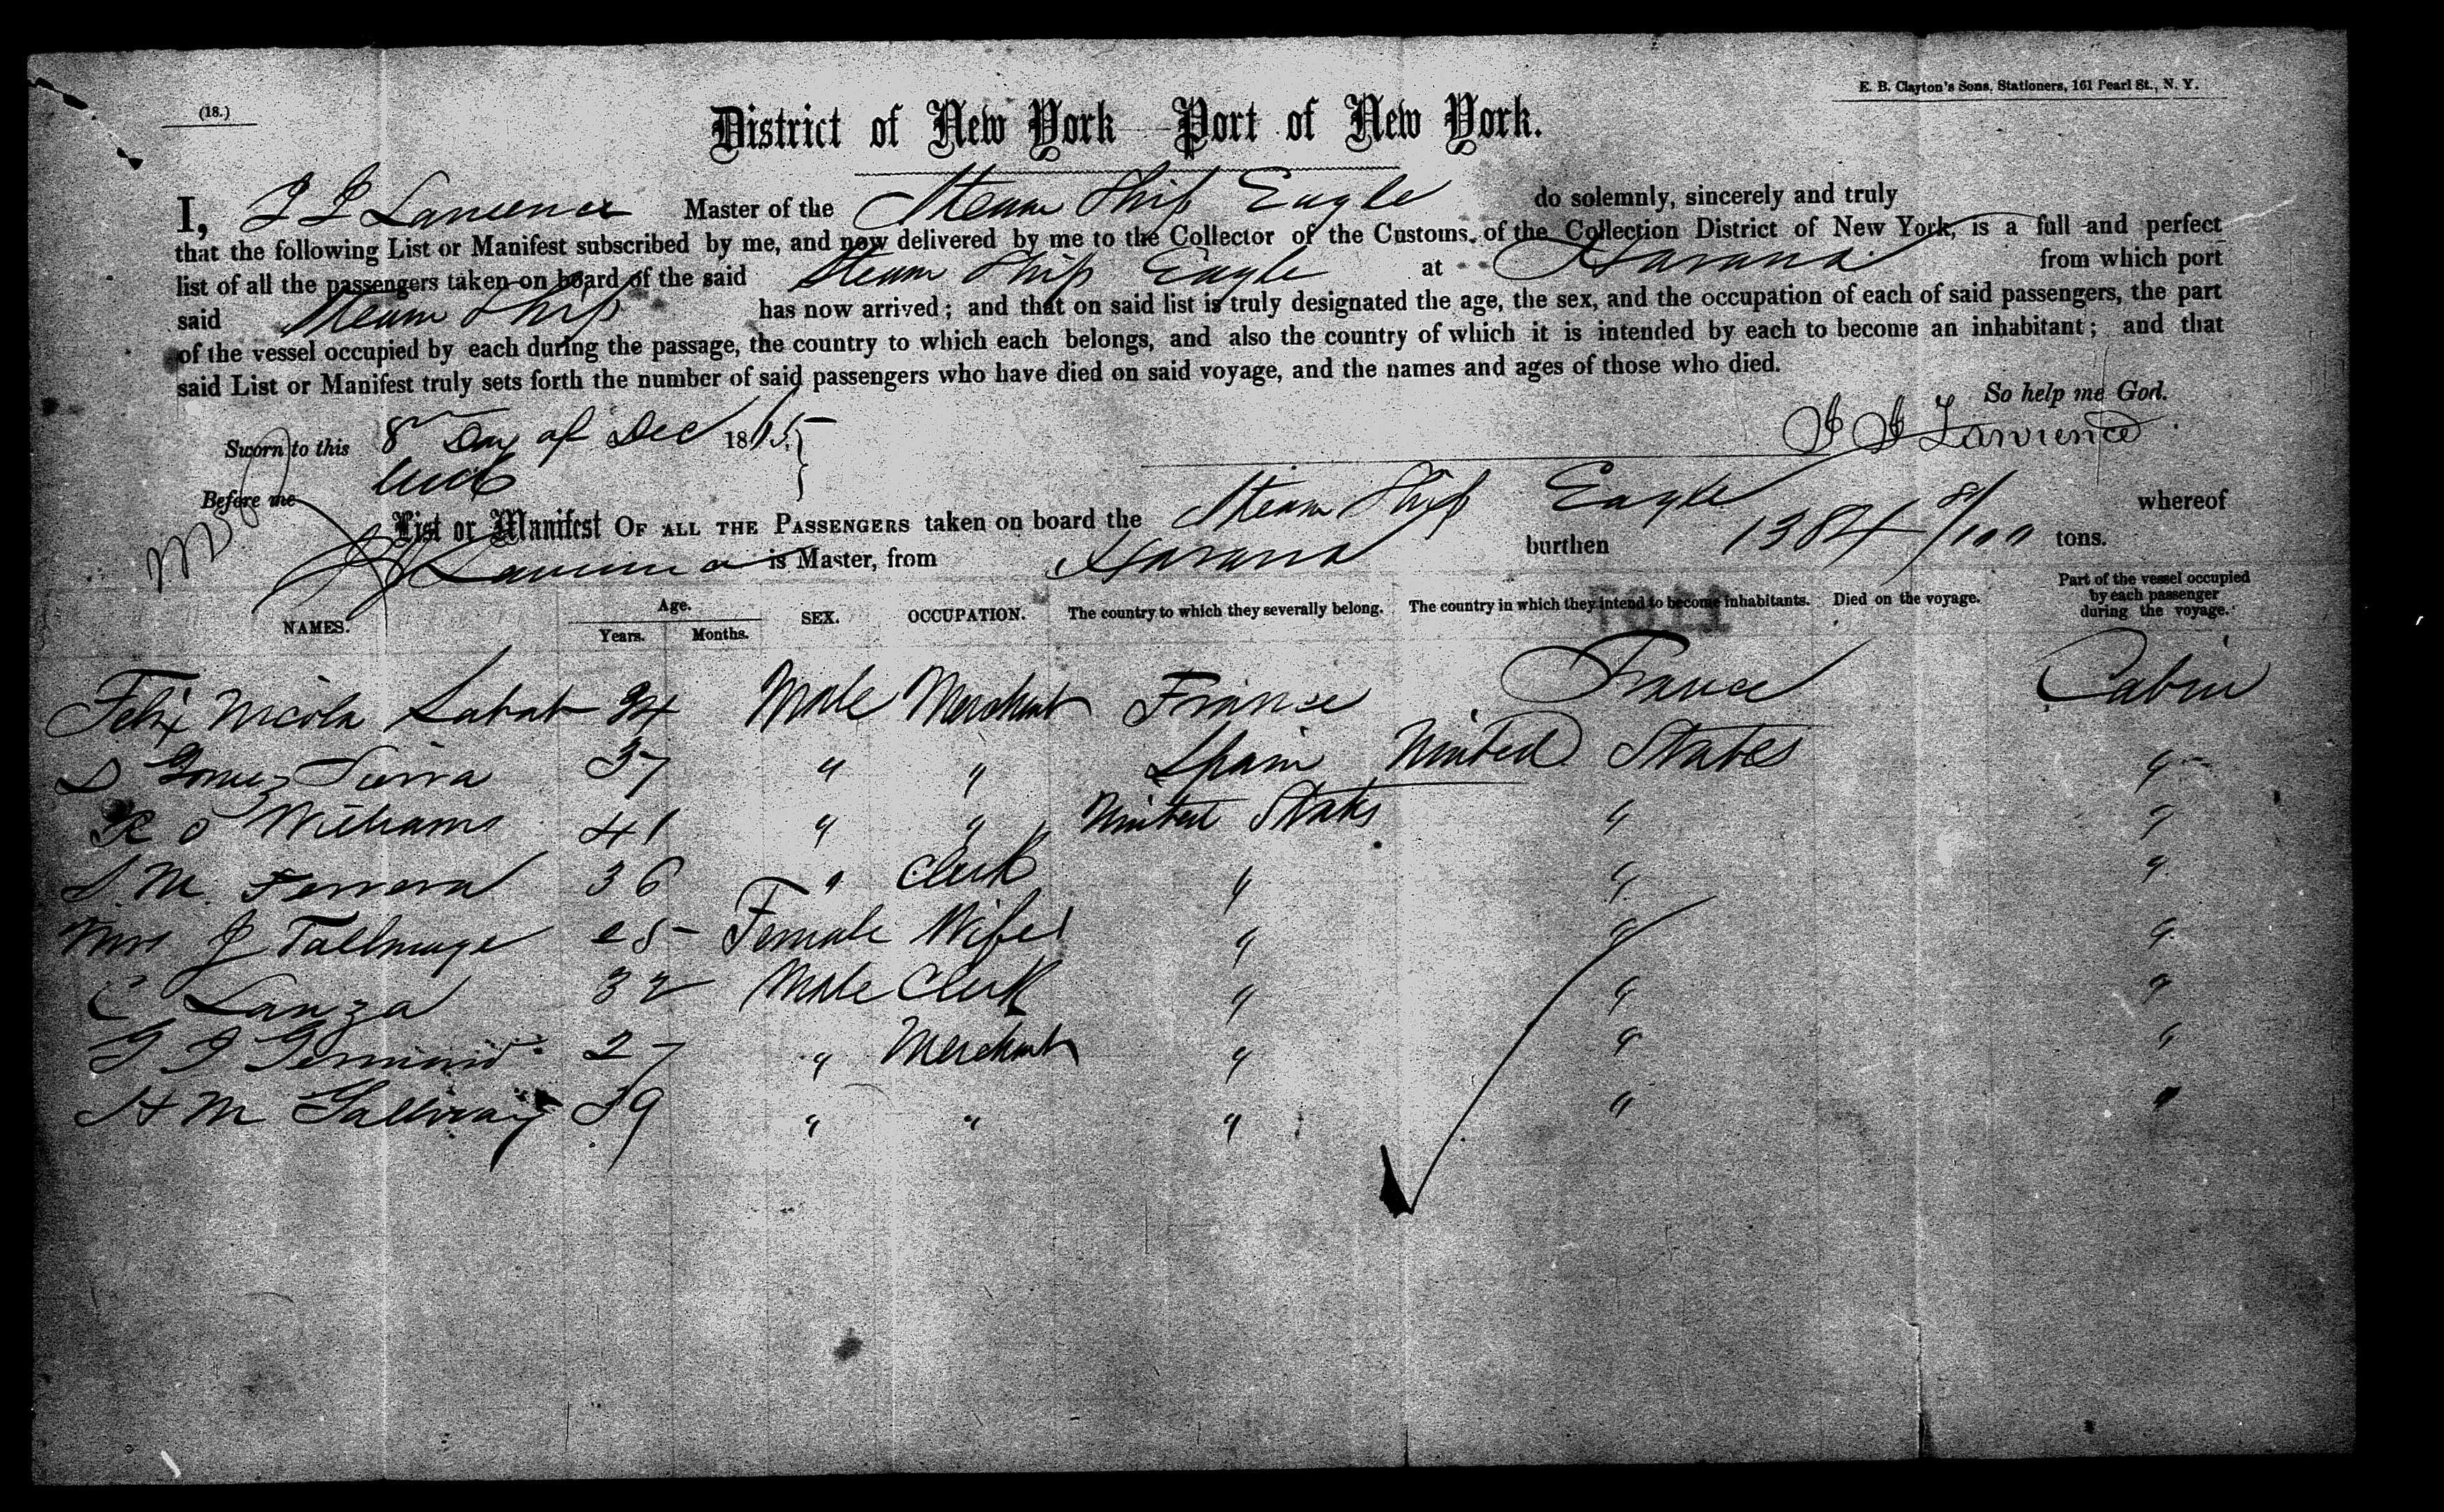 (18.)
E. B. Clayton's Sons, Stationers, 161 Pearl St., N. Y.
District of New York Port of New York.
I, Lawrence Master of the Steam Ship Eagle do solemnly, sincerely and truly
that the following List or Manifest subscribed by me, and now delivered by me to the Collector of the Customs, of the Collection District of New York, is a full and perfect
list of all the passengers taken on board of the said Steam Ship Eagle at Havana from which port
said Steam Ship has now arrived; and that on said list is truly designated the age, the sex, and the occupation of each of said passengers, the part
of the vessel occupied by each during the passage, the country to which each belongs, and also the country of which it is intended by each to become an inhabitant; and that
said List or Manifest truly sets forth the number of said passengers who have died on said voyage, and the names and ages of those who died.
So help me God.
Sworn to this 8 Day of Dec 18
Lawrence
Before me
List or Manifest OF ALL THE PASSENGERS taken on board the Steam Ship Eagle whereof
Lawrence is Master, from Havana burthen 1384 /100 tons.
NAMES. Age. Years. Months. SEX. OCCUPATION. The country to which they severally belong. The country in which they intend to become inhabitants. Died on the voyage. Part of the vessel occupied by each passenger during the voyage.
Felix Nicola Labat Male Merchant France France Cabin
Gomez Sierra 37 " " Spain United States "
Williams 41 " " United States " "
M. Ferrera 36 " Clerk " " "
Mrs J Tallmage 25 Female Wife " " "
C Lanza 32 Male Clerk " " "
27 " Merchant " " "
H M 39 " " " " "